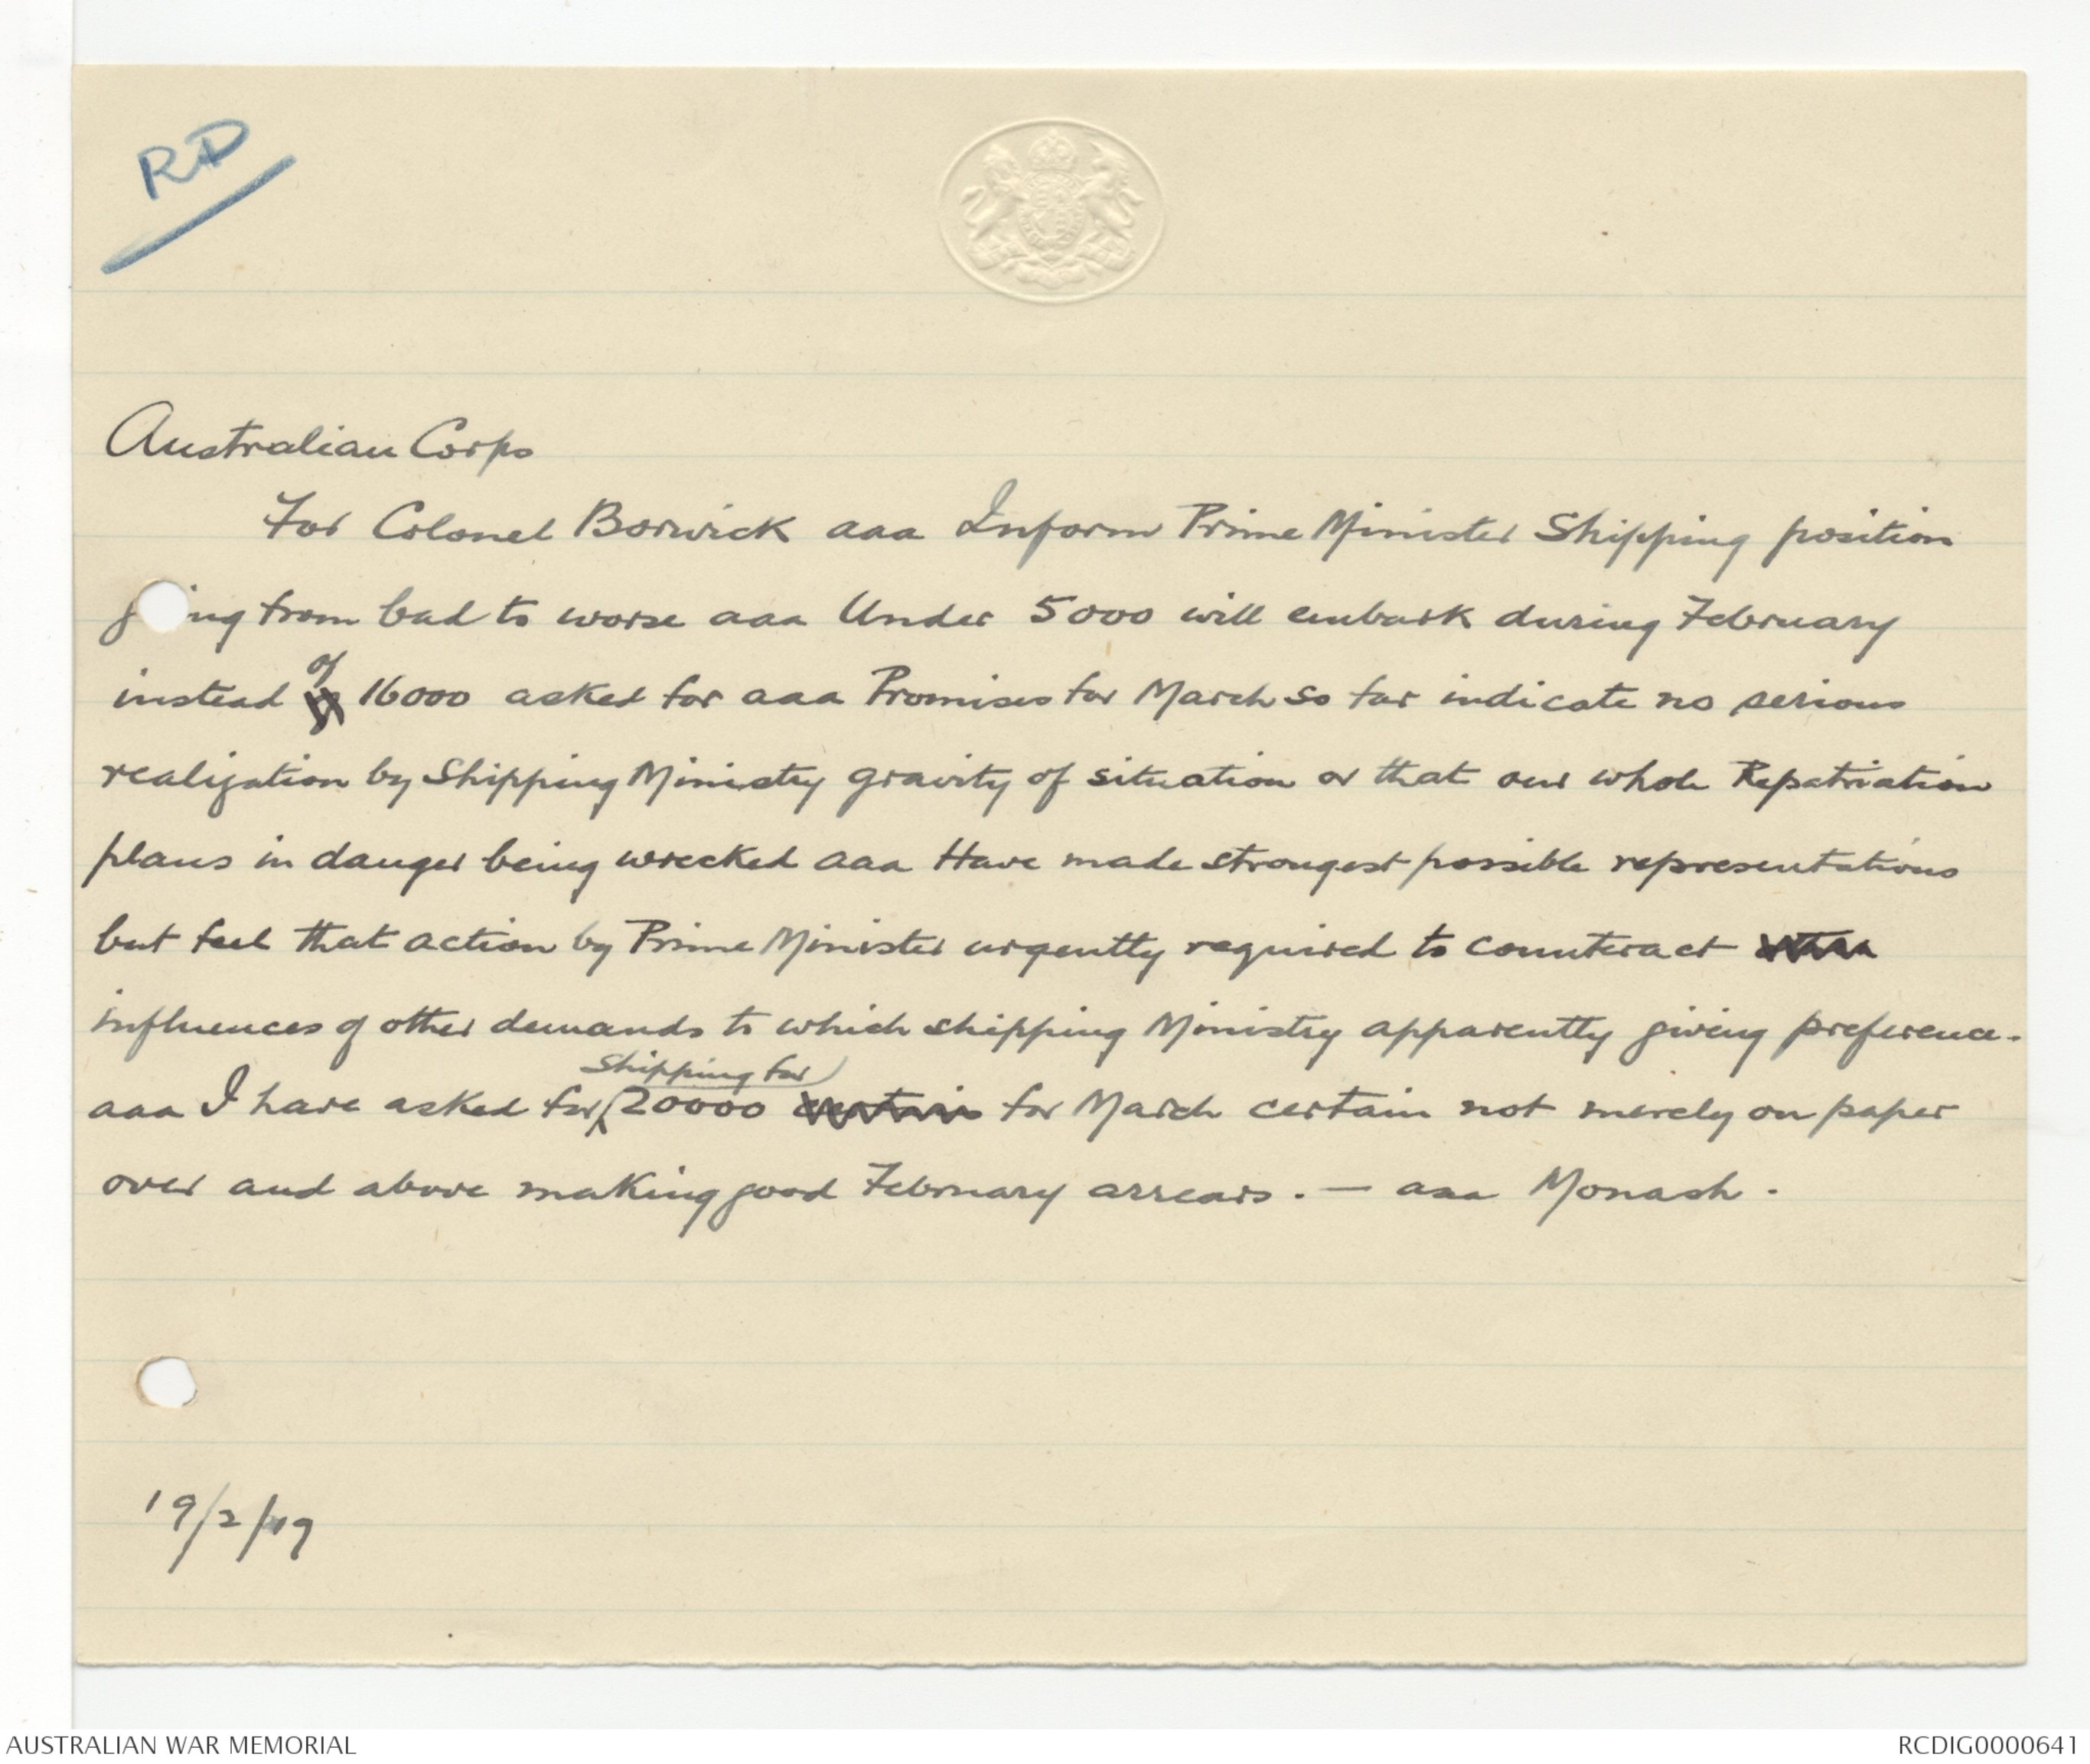 RD
Australian Corps
For Colonel Borwick aaa Inform Prime Minister Shipping position
going from bad to worse aaa Under 5000 will embark during February
instead of 16000 asked for aaa Promises for March so far indicate no serious
realization by Shipping Ministry gravity of situation or that our whole Repatriation
plans in danger being wrecked aaa Have made strongest possible representations
but feel that action by Prime Minister urgently required to counteract
influences of other demands to which shipping Ministry apparently giving preference.
aaa I have asked for shipping for 20000 certain for March certain not merely on paper
over and above making good February arrears. — aaa Monash.
19/2/19
AUSTRALIAN WAR MEMORIAL
RCDIG0000641